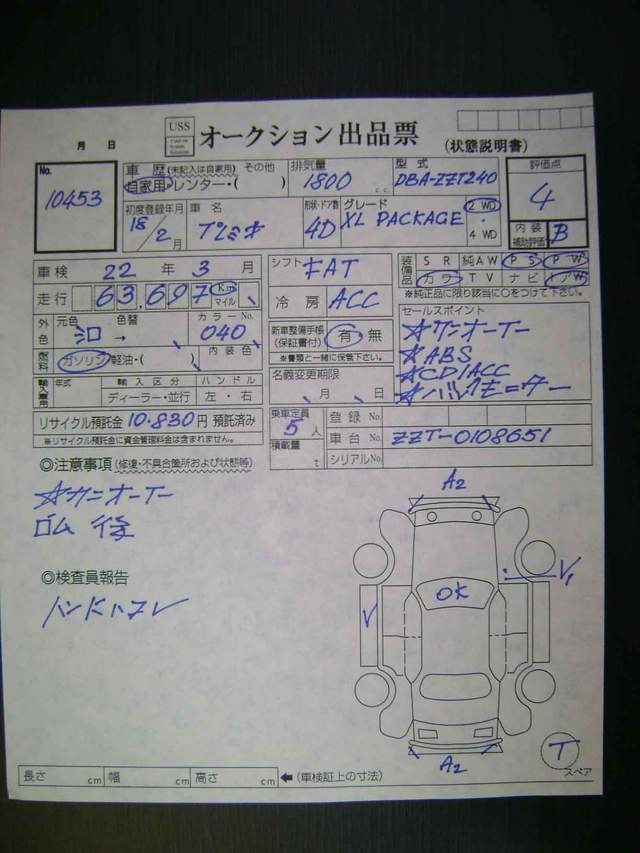 USS
オークション出品票
(状態説明書)
月 日
No.
10453
車歴(未記入は自家用) その他
自家用・レンター・( )
排気量
1800 c.c
型式
DBA-ZZT240
評価点
4
初度登録年月
18/2月
車名
プレミオ
形状・ドア数
4D
グレード
XL PACKAGE
2 WD
・
4 WD
内装
補助評価
B
車検 22年 3月
走行 63,697 Km マイル
シフト
FAT
冷房
ACC
装備品
SR 純AW PS PW
カワ TV ナビ エアW
※純正品に限り該当に○をつけて下さい。
外色
元色 色替 カラーNo.
シロ → 040
燃料
ガソリン・軽油・( )
内装色
新車整備手帳
(保証書付)
有・無
※書類と一緒に保管下さい。
名義変更期限
月 日
セールスポイント
☆サンオーナー
☆ABS
☆CD/ACC
☆バックモニター
輸入車用
年式 輸入区分 ハンドル
ディーラー・並行 左・右
リサイクル預託金 10.830円 預託済み
※リサイクル預託金に資金管理料金は含まれません。
乗車定員
5人
積載量
t
登録 No.
車台 No.
ZZT-0108651
シリアルNo.
◎注意事項 (修復・不具合箇所および状態等)
☆サンオーナー
ゴム 後
◎検査員報告
ハンドルスレ
A2
V1
OK
V
A2
T
スペア
長さ cm 幅 cm 高さ cm ←(車検証上の寸法)